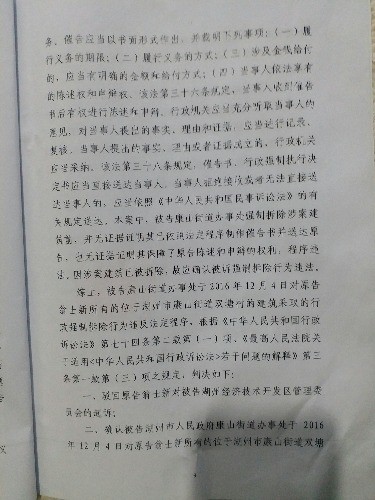 务。催告应当以书面形式作出，并载明下列事项：（一）履
行义务的期限；（二）履行义务的方式；（三）涉及金钱给付
的，应当有明确的金额和给付方式；（四）当事人依法享有
的陈述权和申辩权。该法第三十六条规定，当事人收到催告
书后有权进行陈述和申辩。行政机关应当充分听取当事人的
意见，对当事人提出的事实、理由和证据，应当进行记录、
复核。当事人提出的事实、理由或者证据成立的，行政机关
应当采纳。该法第三十八条规定，催告书、行政强制执行决
定书应当直接送达当事人。当事人拒绝接收或者无法直接送
达当事人的，应当依照《中华人民共和国民事诉讼法》的有
关规定送达。本案中，被告康山街道办事处强制拆除涉案建
筑前，并无证据证明其已依照法定程序制作催告书并送达原
告，也无证据证明其保障了原告陈述和申辩的权利，程序违
法。因涉案建筑已被拆除，故应确认被诉强制拆除行为违法。
综上，被告康山街道办事处于2016年12月4日对原告
俞士新所有的位于湖州市康山街道双塘的建筑采取的行
政强制拆除行为违反法定程序。根据《中华人民共和国行政
诉讼法》第七十四条第二款第（一）项、《最高人民法院关
于适用<中华人民共和国行政诉讼法>若干问题的解释》第三
条第一款第（三）项之规定，判决如下：
一、驳回原告俞士新对被告湖州经济技术开发区管理委
员会的起诉；
二、确认被告湖州市人民政府康山街道办事处于2016
年12月4日对原告俞士新所有的位于湖州市康山街道双塘